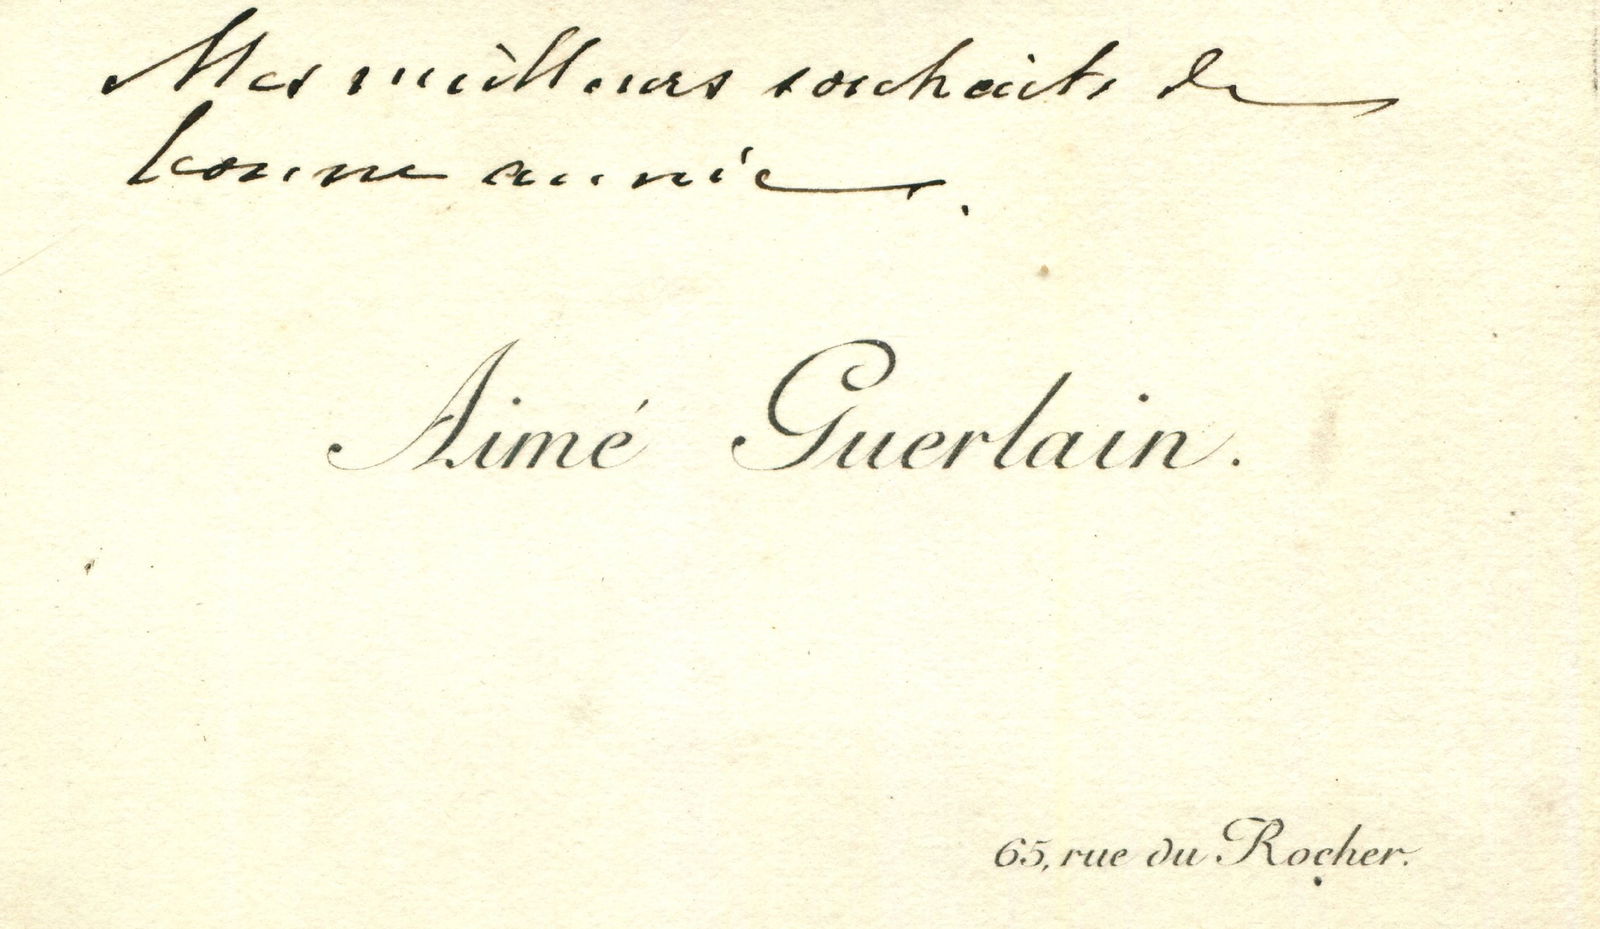 Mes meilleurs souhaits de
bonne année.
Aimé Guerlain.
65, rue du Rocher.